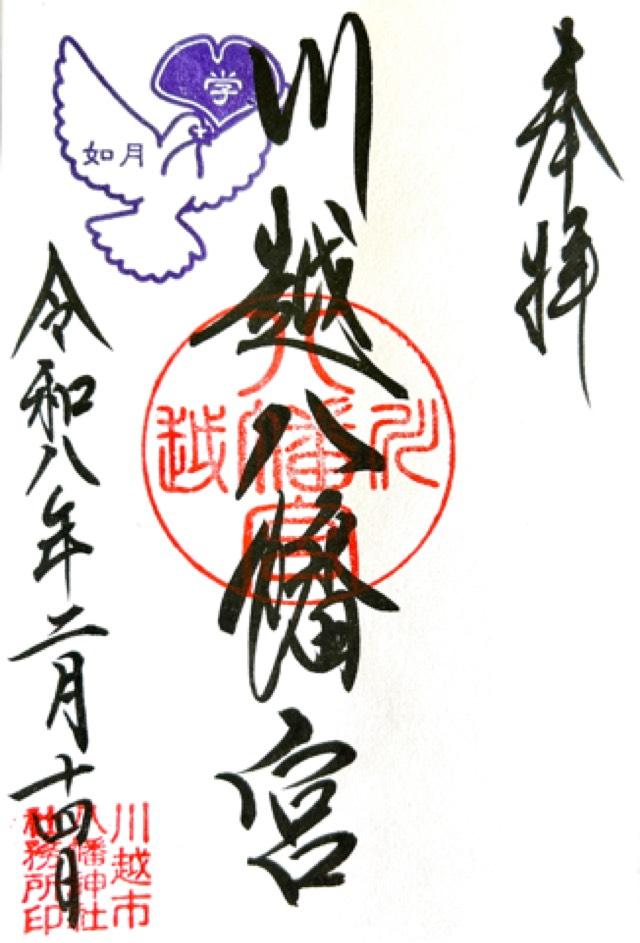 奉拝
川越八幡宮
川越
八幡宮
学
如月
令和八年二月十四日
川越市
八幡神社
社務所印